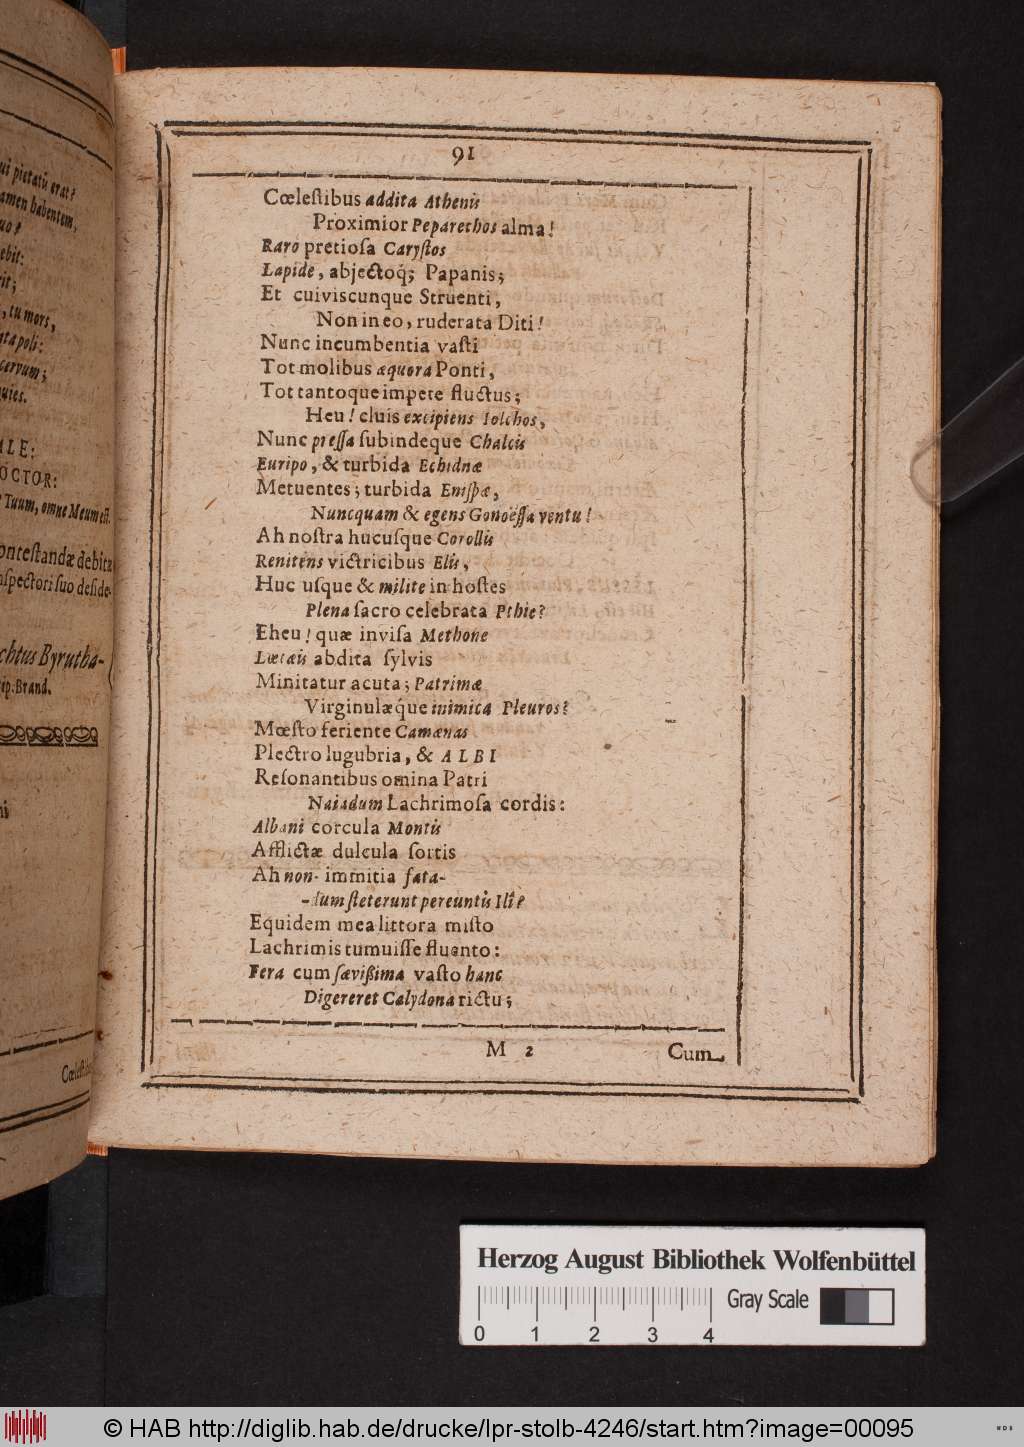 ui pietatū erat?
amen habentem,
uo?
ebit:
rit;
, tu mors,
ntapoli:
cervum;
quies.
ALE:
OCTOR:
Tuum, omne Meum est.
onteſtandæ debitu
nſpectori ſuo deſide-
chtus Byrutha-
ip: Brand.
Cœleſti
91
Cœleſtibus addita Athenis
Proximior Peparethos alma!
Raro pretioſa Caryſtos
Lapide, abjectoq́; Papanis;
Et cuiviscunque Struenti,
Non in eo, ruderata Diti!
Nunc incumbentia vaſti
Tot molibus æquora Ponti,
Tot tantoque impete fluctus;
Heu! cluis excipiens Iolchos,
Nunc preſſa ſubindeque Chalcis
Euripo, & turbida Echidnæ
Metuentes; turbida Eniſpæ,
Nuncquam & egens Gonoëſſa ventu!
Ah noſtra hucuſque Corollis
Renitens victricibus Elis,
Huc uſque & milite in hoſtes
Plena ſacro celebrata Pthie?
Eheu! quæ inviſa Methone
Lœtæis abdita ſylvis
Minitatur acuta; Patrimæ
Virginulæq́ue inimica Pleuros?
Mœſto feriente Camænas
Plectro lugubria, & ALBI
Reſonantibus omina Patri
Naiadum Lachrimoſa cordis:
Albani corcula Montis
Afflictæ dulcula ſortis
Ah non- immitia fata-
-dum ſteterunt pereuntis Ilî?
Equidem mea littora miſto
Lachrimis tumuiſſe fluento:
Fera cum ſævißima vaſto hanc
Digereret Calydona rictu;
M 2
Cum
Herzog August Bibliothek Wolfenbüttel
Gray Scale
0 1 2 3 4
© HAB http://diglib.hab.de/drucke/lpr-stolb-4246/start.htm?image=00095